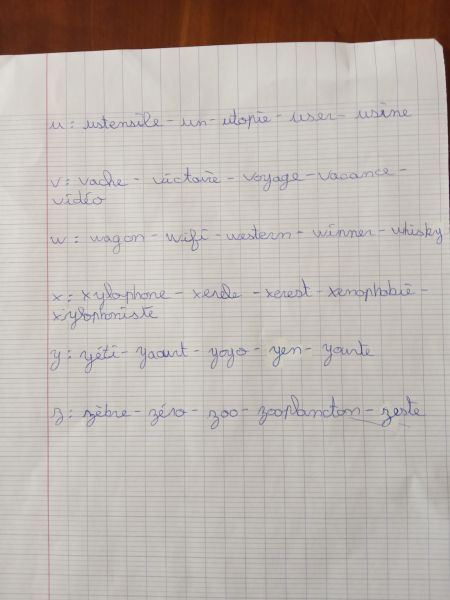 u: ustensile - un - utopie - user - usine
v: vache - victoire - voyage - vacance -
vidéo
w: wagon - wifi - western - winner - whisky
x: xylophone - - xerest - xenophobie -
xylophoniste
y: yéti - yaourt - yoyo - yen - yourte
z: zèbre - zéro - zoo - zooplancton - zeste